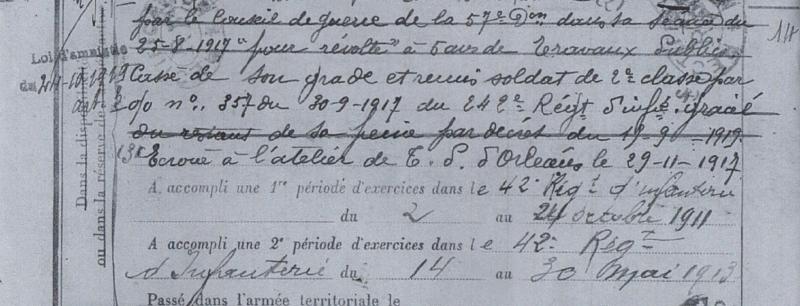 par le Conseil de guerre de la 57e Don dans sa séance du
25-8-1917 "pour révolte" à 5 ans de Travaux Publics
Loi d'amnistie
du 24-10-1919 Cassé de son grade et remis soldat de 2e classe par
art 2 o/o no. 357 du 30-9-1917 du 242e Régt d'infie. gracié
du restant de sa peine par décret du 19-9-1919
Ecroué à l'atelier de T. P. d'Orléans le 29-11-1917
A accompli une 1re période d'exercices dans le 42e Régt d'infanterie
du 2 au 24 octobre 1911
A accompli une 2e période d'exercices dans le 42e Régt
d'Infanterie du 14 au 30 Mai 1913
Passé dans l'armée territoriale le
Dans la
ou dans la réserve de
14